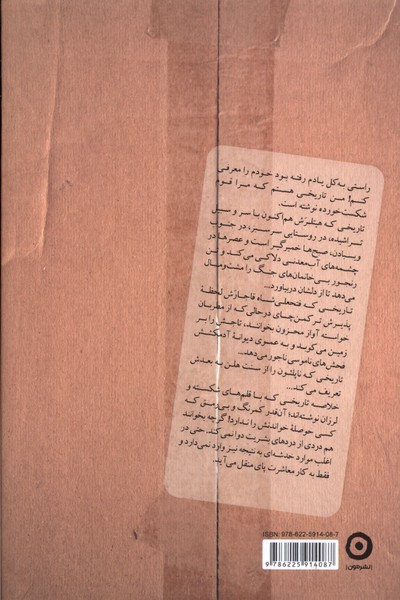 راستی به‌کل یادم رفته بود خودم را معرفی
کنم! من تاریخی هستم که مرا قوم
شکست‌خورده نوشته است.
تاریخی که هیتلرش هم‌اکنون با سر و سبیل
تراشیده، در روستایی سرسبز، در جنوب
ویسبادن، صبح‌ها خمیرگیر است و عصرها در
چشمه‌های آب‌معدنی دلاکی می‌کند و تن
رنجور بی‌خانمان‌های جنگ را مشت‌ومال
می‌دهد تا از دلشان دربیاورد...
تاریخی که فتحعلی‌شاه قاجارش لحظهٔ
پذیرش ترکمن‌چای درحالی‌که از مطربان
خواسته آواز محزون بخوانند، تاجش را بر
زمین می‌کوبد و به عموی دیوانهٔ آدمکشش
فحش‌های ناموسی ناجور می‌دهد...
تاریخی که ناپلئون را از سنت هلن به بعدش
تعریف می‌کند...
خلاصه تاریخی که با قلم‌های شکسته و
لرزان نوشته‌اند؛ آن‌قدر کمرنگ و بی‌رمق که
کسی حوصلهٔ خواندنش را ندارد! گرچه بخوانند
هم دردی از دردهای بشریت دوا نمی‌کند. حتی در
اغلب موارد خدشه‌ای به نتیجه نیز وارد نمی‌دارد و
فقط به کار معاشرت پای منقل می‌آید.
ISBN: 978-622-5914-08-7
9 786225 914087
انشرمون|